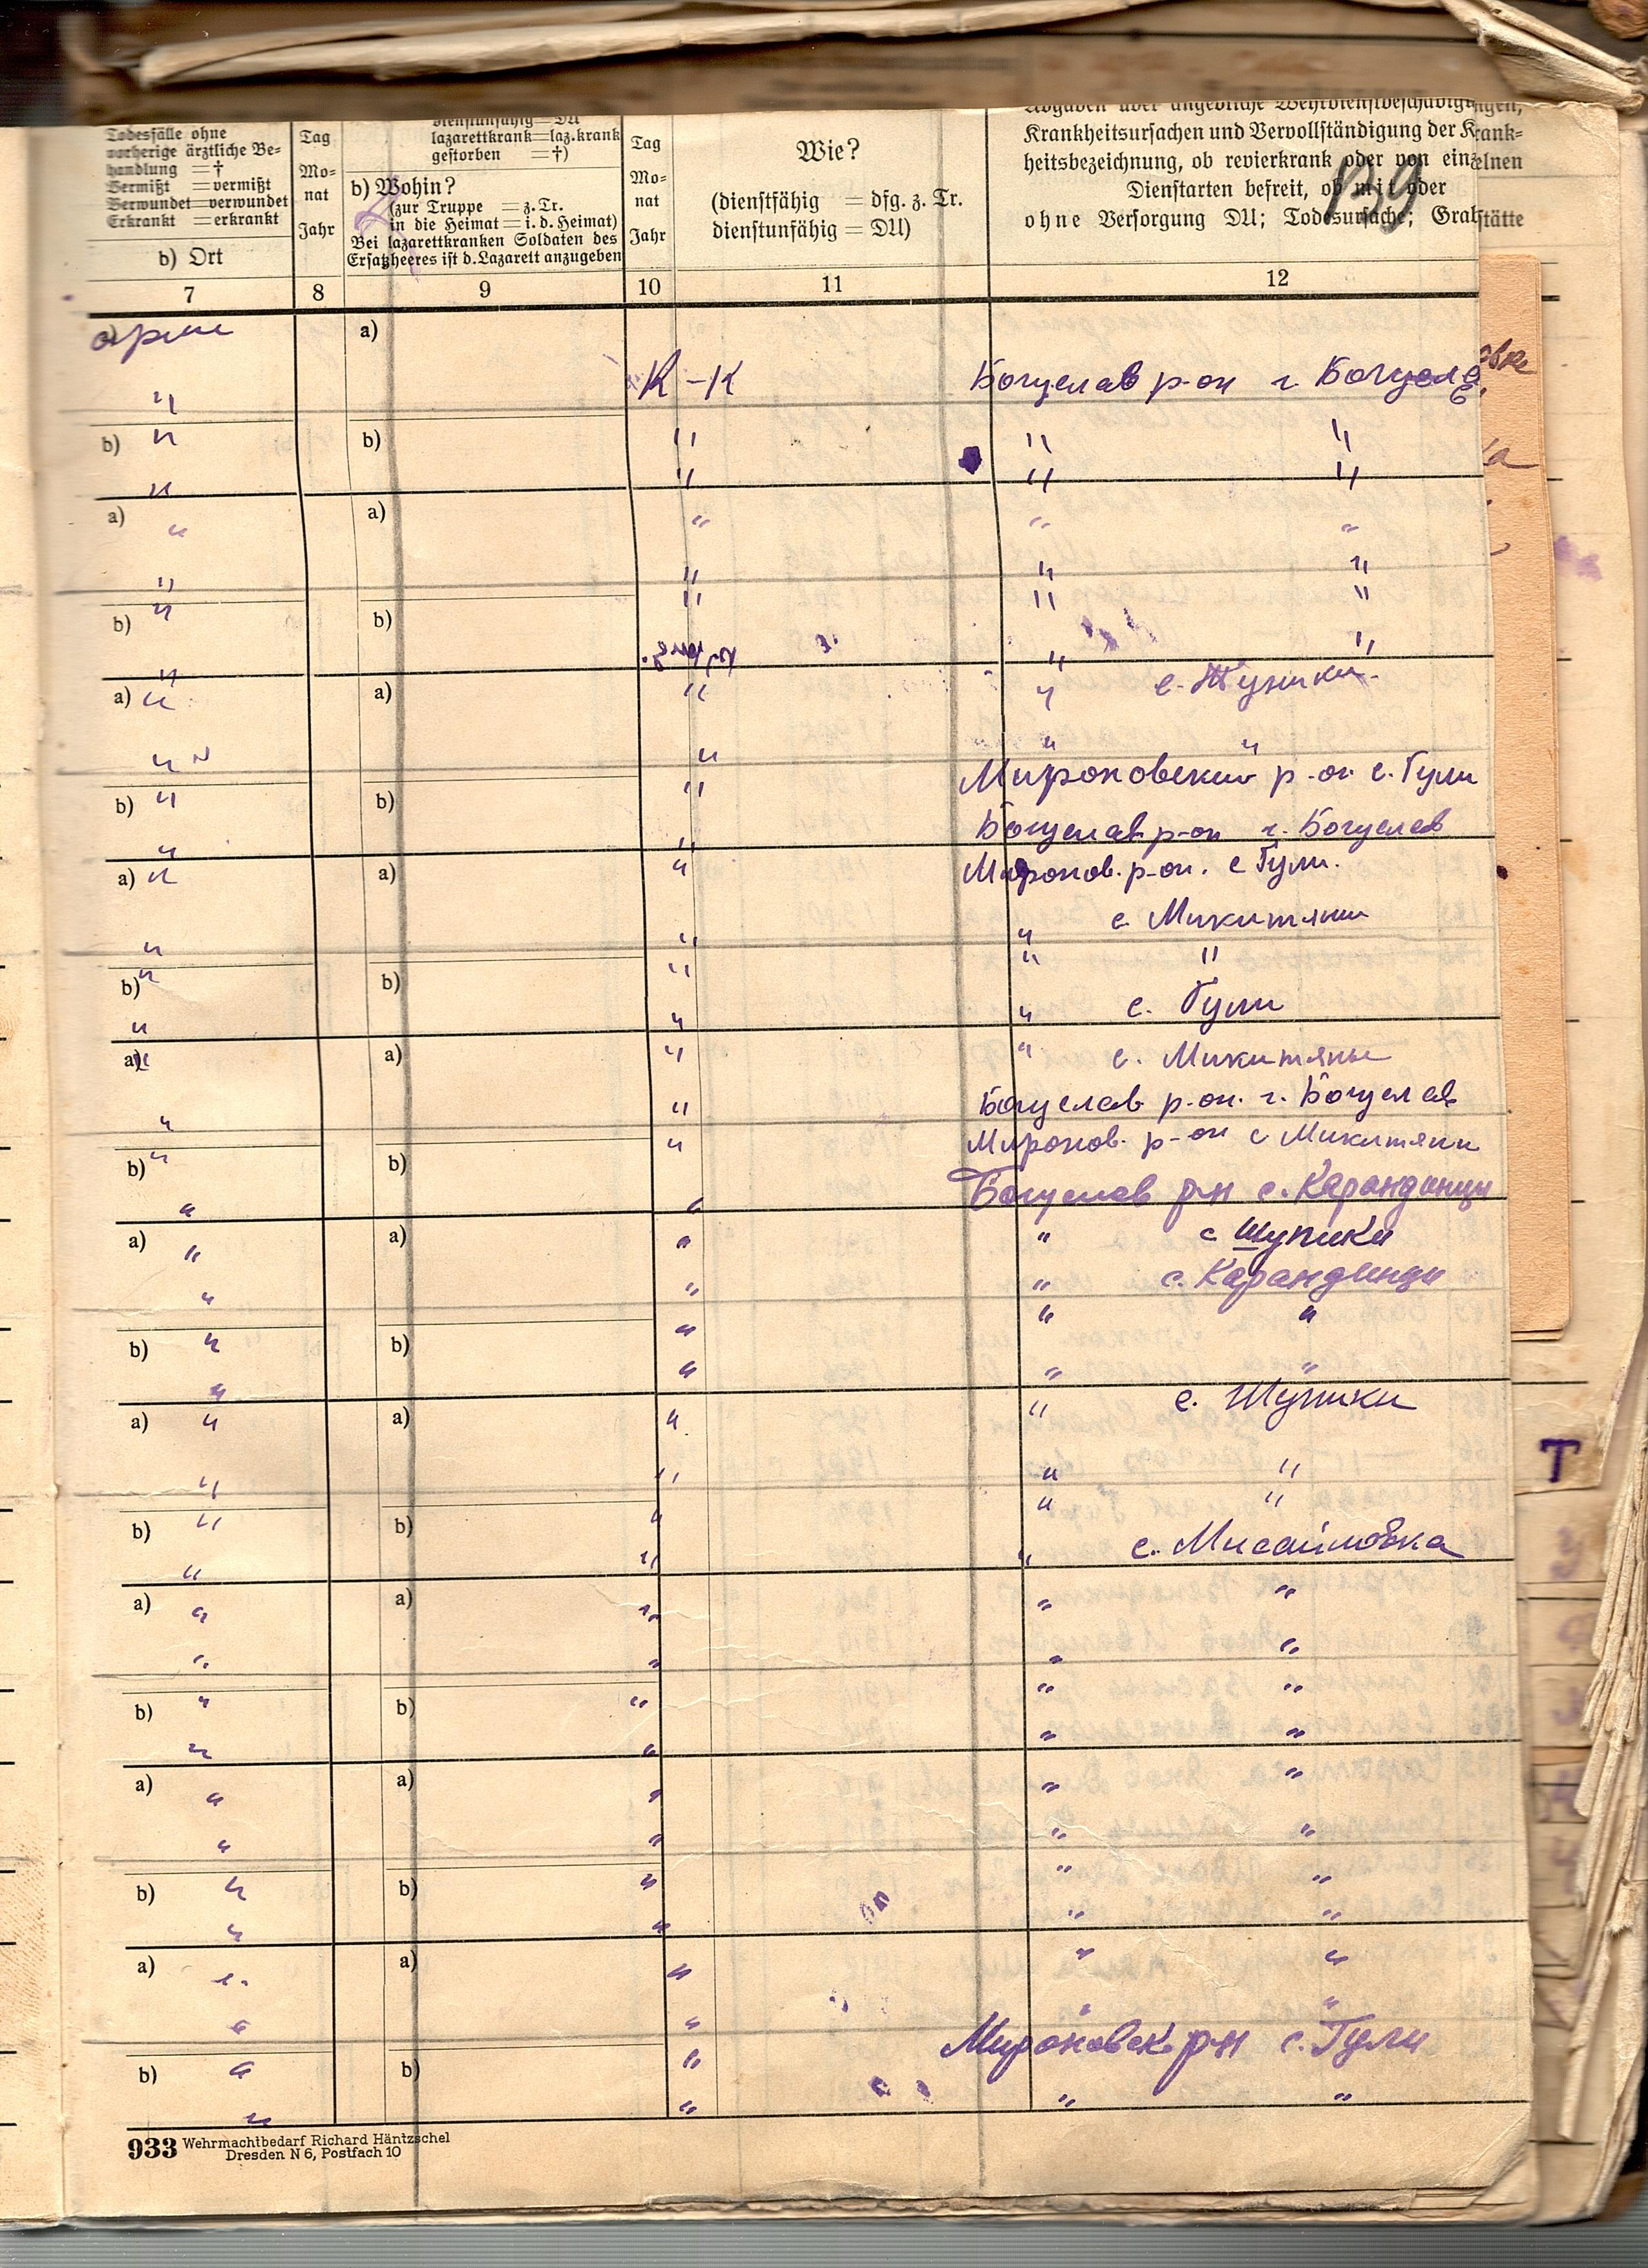 Todesfälle ohne
vorherige ärztliche Be-
handlung = †
Vermißt = vermißt
Verwundet = verwundet
Erkrankt = erkrankt
b) Ort
Tag
Mo-
nat
Jahr
dienstunfähig = DU
lazarettkrank = laz.krank
gestorben = †)
b) Wohin?
(zur Truppe = z. Tr.
in die Heimat = i. d. Heimat)
Bei lazarettkranken Soldaten des
Ersatzheeres ist d. Lazarett anzugeben
Tag
Mo-
nat
Jahr
Wie?
(dienstfähig = dfg. z. Tr.
dienstunfähig = DU)
Krankheitsursachen und Vervollständigung der Krank-
heitsbezeichnung, ob revierkrank oder von einzelnen
Dienstarten befreit, ob mit oder
ohne Versorgung DU; Todesursache; Grabstätte
139
7 8 9 10 11 12
a)
К-К Богуслав р-он г. Богуслав
" "
b) " b) " " "
" " " "
a) " a) " " "
" " " "
b) " b) " " "
" " "
a) " a) " " с. Шупики
" " " "
b) " b) " Мироновский р-он. с. Гули
" " Богуслав р-он г. Богуслав
a) " a) " Миронов. р-он. с Гули.
" " " с Микитяни
b) " b) " " "
" " " с. Гули
a) " a) " " с. Микитяны
" " Богуслав р-он. г. Богуслав
b) " b) " Миронов. р-он с Микитяни
" " Богуслав рн с. Карандинцы
a) " a) " " с Шупики
" " " с. Карандинци
b) " b) " " "
" " " "
a) " a) " " с. Шупики
" " " "
b) " b) " " "
" " " с. Мисайловка
a) " a) " " "
" " " "
b) " b) " " "
" " " "
a) " a) " " "
" " " "
b) " b) " " "
" " " "
a) " a) " " "
" " " "
b) " b) " Мироновск рн с. Гули
" " " "
Т
933 Wehrmachtbedarf Richard Häntzschel
Dresden N 6, Postfach 10